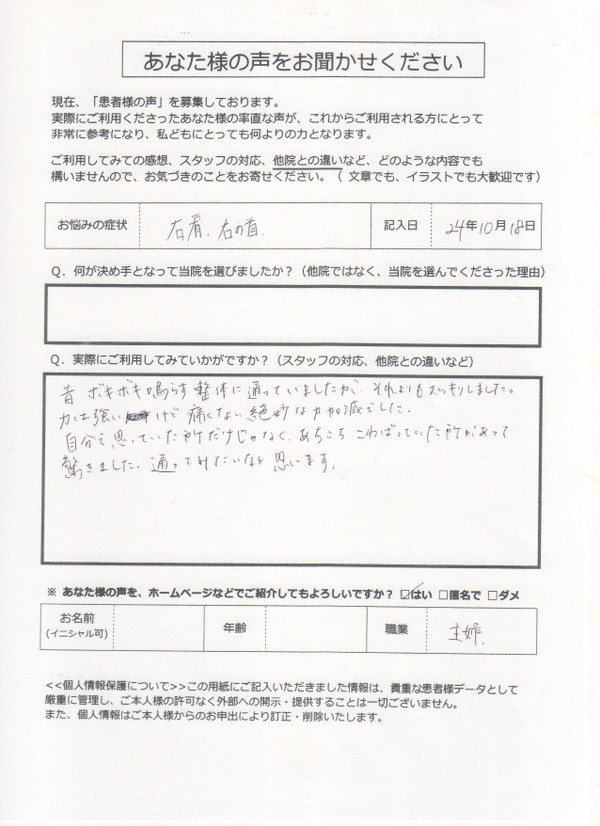 あなた様の声をお聞かせください
現在、「患者様の声」を募集しております。
実際にご利用くださったあなた様の率直な声が、これからご利用される方にとって
非常に参考になり、私どもにとっても何よりの力となります。
ご利用してみての感想、スタッフの対応、他院との違いなど、どのような内容でも
構いませんので、お気づきのことをお寄せください。（ 文章でも、イラストでも大歓迎です）
お悩みの症状 右肩、右の首 記入日 24年10月18日
Q．何が決め手となって当院を選びましたか？（他院ではなく、当院を選んでくださった理由）
Q．実際にご利用してみていかがですか？（スタッフの対応、他院との違いなど）
昔 ボキボキ鳴らす整体に通っていましたが、それよりもスッキリしました。
力は強いけど痛くない絶妙な力加減でした。
自分で思っていた所だけじゃなく、あちこちこわばっていた所があって
驚きました。通ってみたいなと思います。
※ あなた様の声を、ホームページなどでご紹介してもよろしいですか？ ☑はい □匿名で □ダメ
お名前 年齢 職業 主婦
(イニシャル可)
<<個人情報保護について>>この用紙にご記入いただきました情報は、貴重な患者様データとして
厳重に管理し、ご本人様の許可なく外部への開示・提供することは一切ございません。
また、個人情報はご本人様からのお申出により訂正・削除いたします。